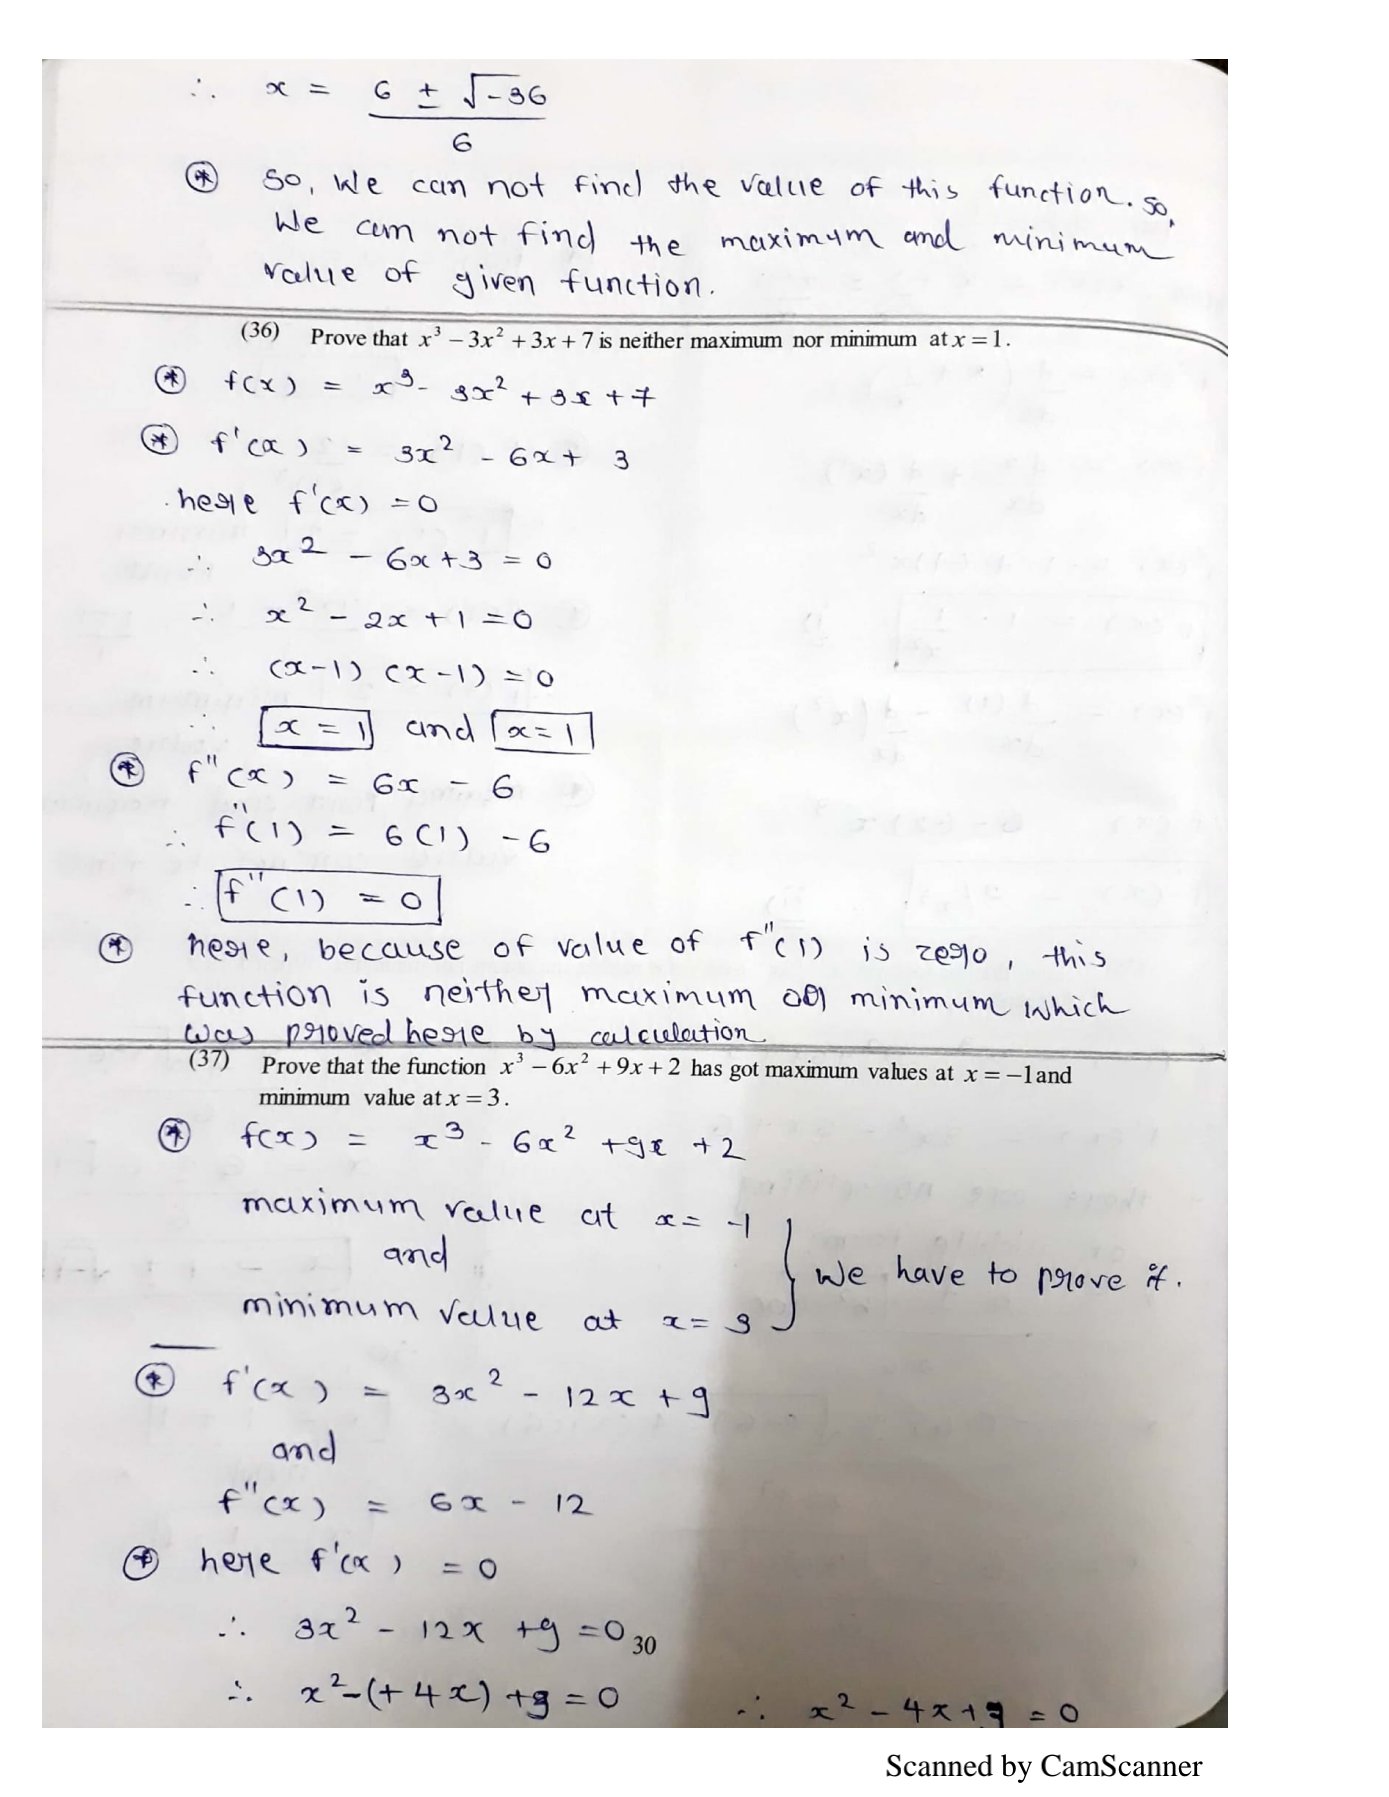 ∴ x = (6 ± √-36) / 6
⊛ So, We can not find the value of this function. so,
We can not find the maximum and minimum
value of given function.
(36) Prove that x³ – 3x² + 3x + 7 is neither maximum nor minimum at x = 1.
⊛ f(x) = x³ - 3x² + 3x + 7
⊛ f'(x) = 3x² - 6x + 3
here f'(x) = 0
∴ 3x² - 6x + 3 = 0
∴ x² - 2x + 1 = 0
∴ (x-1) (x-1) = 0
∴ x = 1 and x = 1
⊛ f"(x) = 6x - 6
∴ f"(1) = 6(1) - 6
∴ f"(1) = 0
⊛ here, because of value of f"(1) is zero, this
function is neither maximum or minimum which
was proved here by calculation
(37) Prove that the function x³ – 6x² + 9x + 2 has got maximum values at x = –1 and
minimum value at x = 3.
⊛ f(x) = x³ - 6x² + 9x + 2
maximum value at x = -1
and
minimum value at x = 3
} We have to prove it.
⊛ f'(x) = 3x² - 12x + 9
and
f"(x) = 6x - 12
⊛ here f'(x) = 0
∴ 3x² - 12x + 9 = 0
30
∴ x² - (+4x) + 3 = 0 ∴ x² - 4x + 3 = 0
Scanned by CamScanner